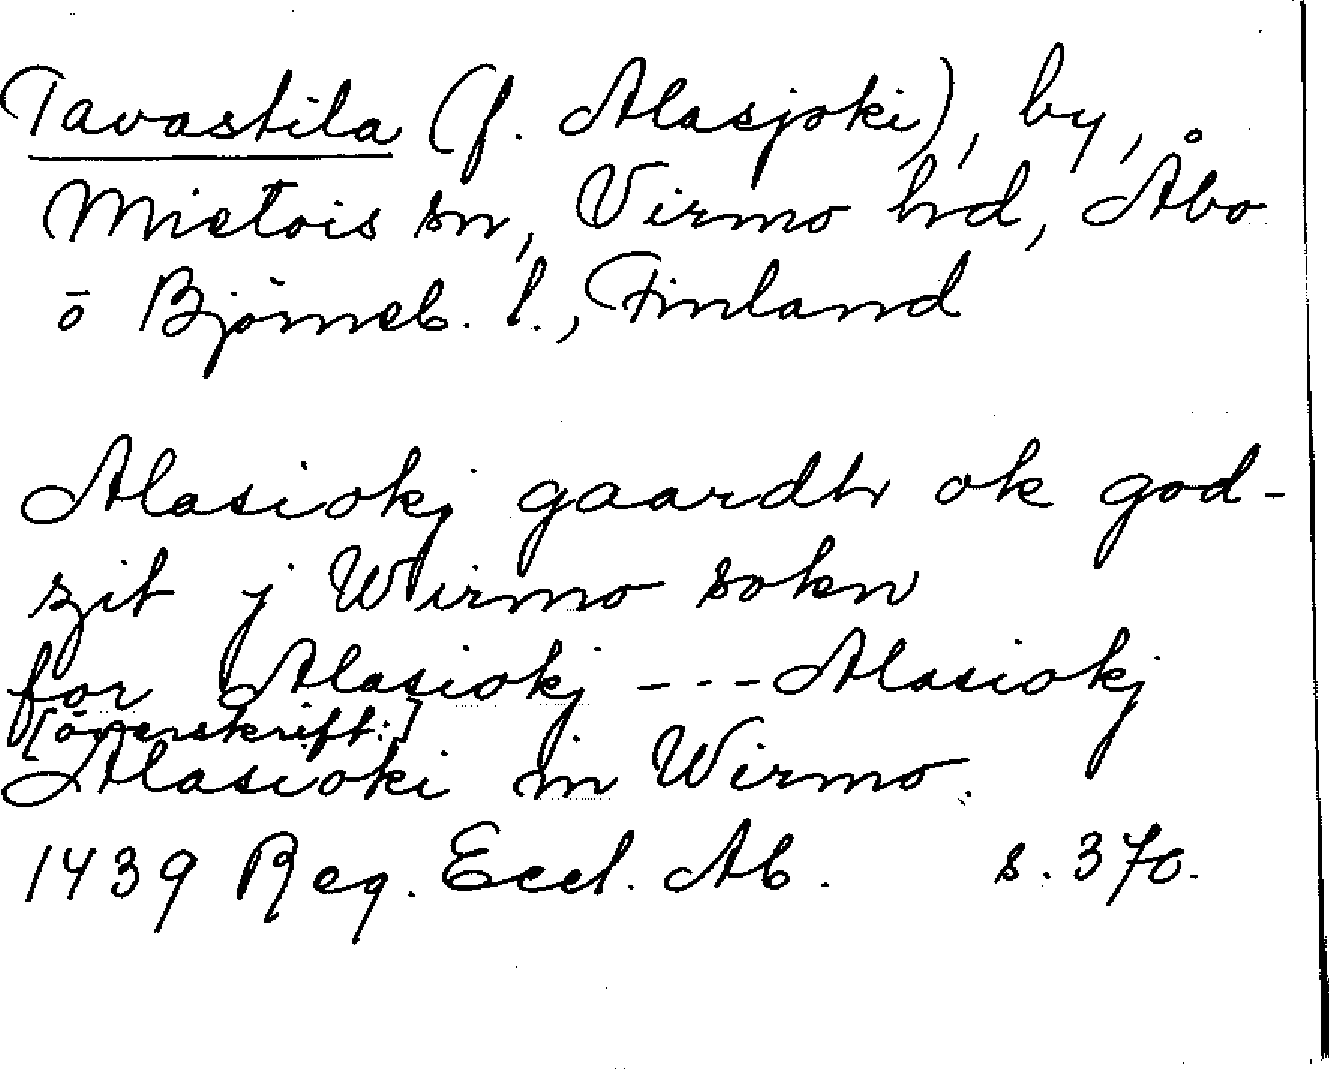 Tavastila (f. Alasjoki), by,
Mietois sn, Virmo hd, Åbo
o Björneb. l., Finland
Alasiokj gaardh ok god-
zit j Wirmo sokn
for Alasiokj --- Alasiokj
[överskrift:]
Alasioki in Wirmo.
1439 Reg. Eccl. Ab. s. 370.